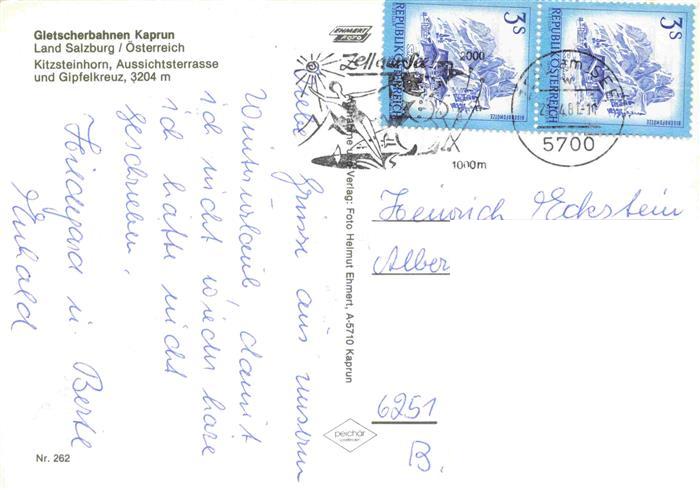 Gletscherbahnen Kaprun
Land Salzburg / Österreich
Kitzsteinhorn, Aussichtsterrasse
und Gipfelkreuz, 3204 m
EHMERT
FOTO
3s
REPUBLIK ÖSTERREICH
BISCHOFSMÜTZE
3s
REPUBLIK ÖSTERREICH
BISCHOFSMÜTZE
Zell am See
2000
1000m
5700
Liebe Grüsse aus unserem
Winterurlaub, damit
ich nicht wieder höre
ich hätte nicht
geschrieben.
Hildegard u. Bertl
Verlag: Foto Helmut Ehmert, A-5710 Kaprun
Heinrich Eckstein
Alber
6251
B.
peichär
Nr. 262